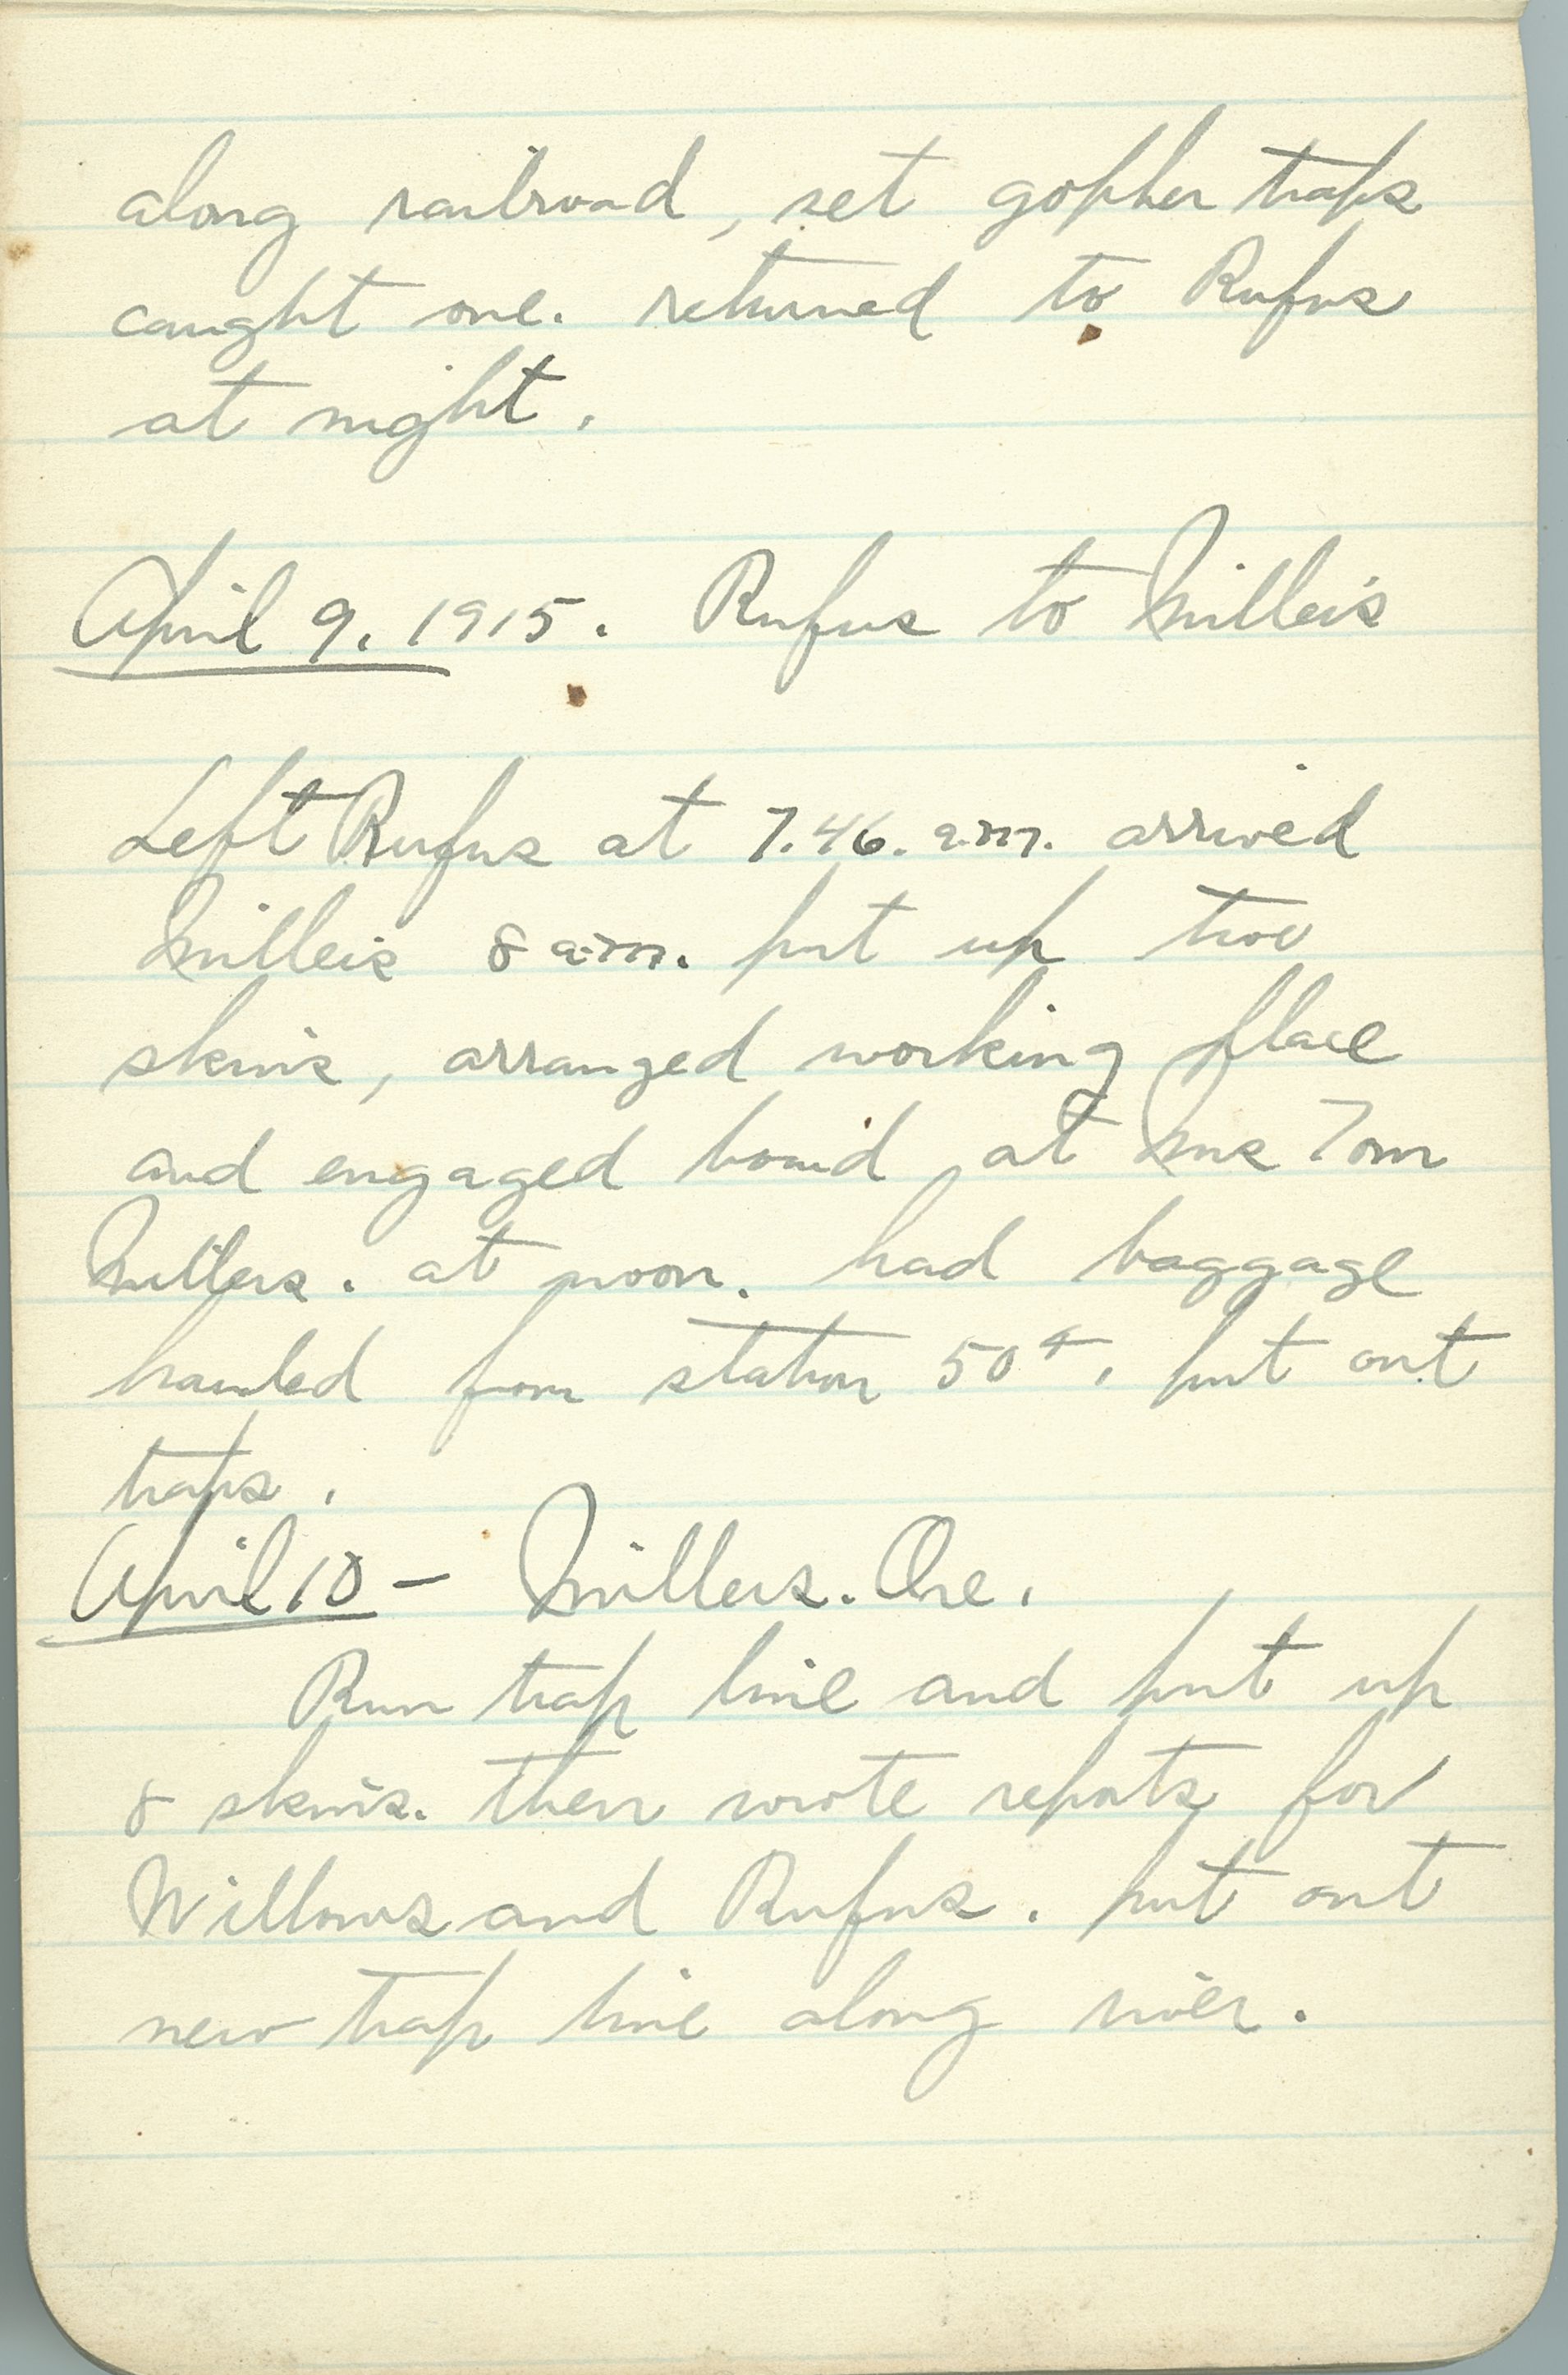 along railroad, set gopher traps
caught one. returned to Rufus
at night.
April 9. 1915. Rufus to Miller's
Left Rufus at 7.46. a.m. arrived
Millers 8 a.m. put up two
skins, arranged working place
and engaged board at Mrs Tom
Millers. at noon. had baggage
hauled from station 50¢, put out
traps.
April 10 - Millers. Ore.
Run trap line and put up
8 skins. then wrote reports for
Willows and Rufus. put out
new trap line along river.